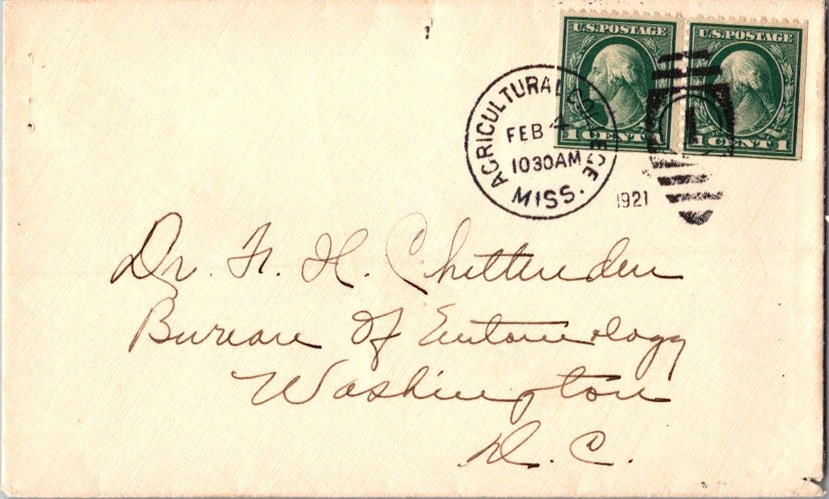 U.S. POSTAGE U.S. POSTAGE
1 CENT 1 CENT 1
AGRICULTURAL COLLEGE
FEB 4
10 30 AM
MISS.
1921
Dr. F. H. Chittenden
Bureau Of Entomology
Washington
D. C.